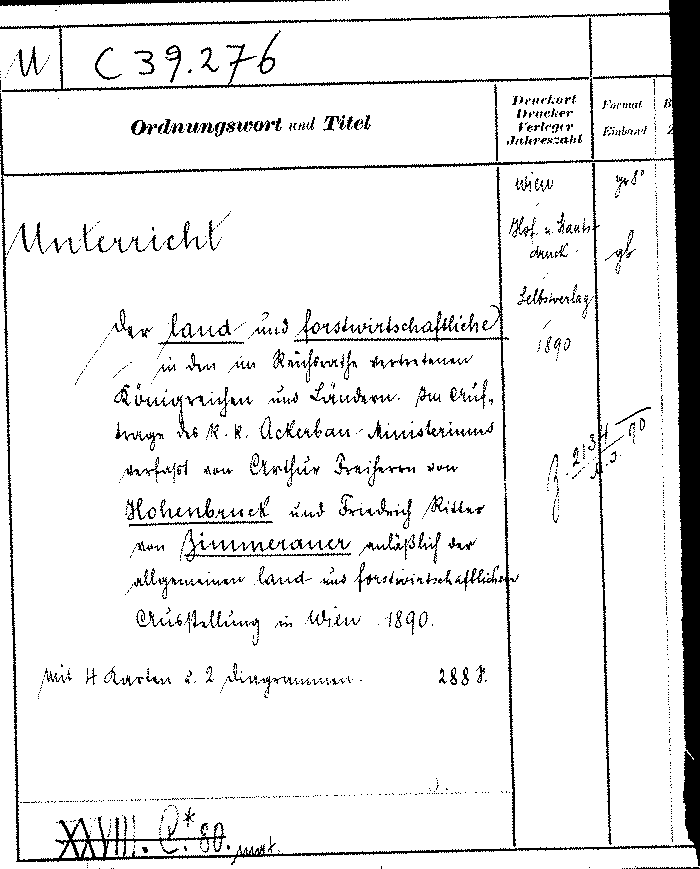 U C 39.276
Ordnungswort und Titel
Druckort
Drucker
Verleger
Jahreszahl
Format
Einband
B
Z
Wien
gr 8°
Unterricht
Hof. u. Staats-
druck.
gb
Selbstverlag
1890
der land und forstwirtschaftliche
in den im Reichsrathe vertretenen
Königreichen und Ländern. Im Auf-
trage des k. k. Ackerbau-Ministeriums
verfaßt von Arthur Freiherrn von
Hohenbruck und Friedrich Ritter
von Zimmerauer anläßlich der
allgemeinen land und forstwirtschaftlichen
Ausstellung in Wien 1890.
Mit 4 Karten u. 2 Diagrammen. 288 S.
Z. 2134
90
XXVIII. C.* 80.